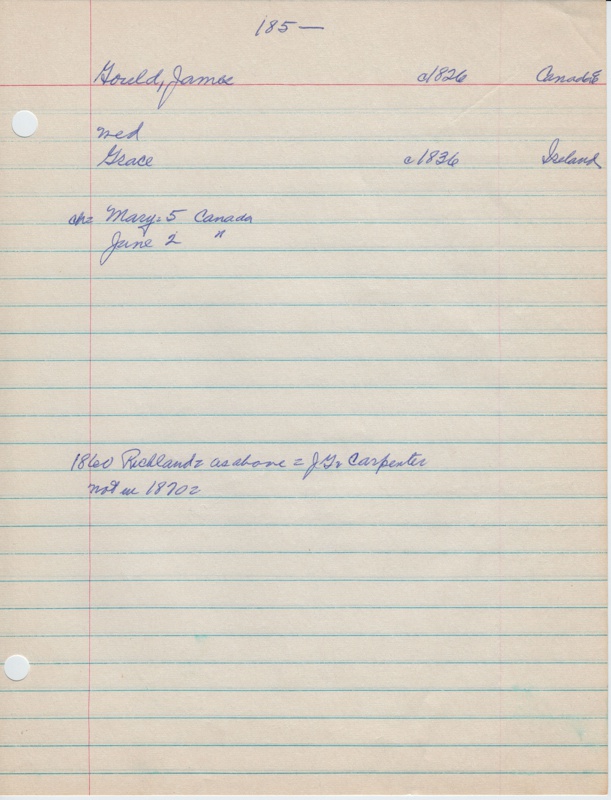 185—
Gould, James c1826 Canada
wed
Grace c1836 Ireland
ch= Mary= 5 Canada
Jane 2 "
1860 Richland= as above = J.G. Carpenter
not in 1870=